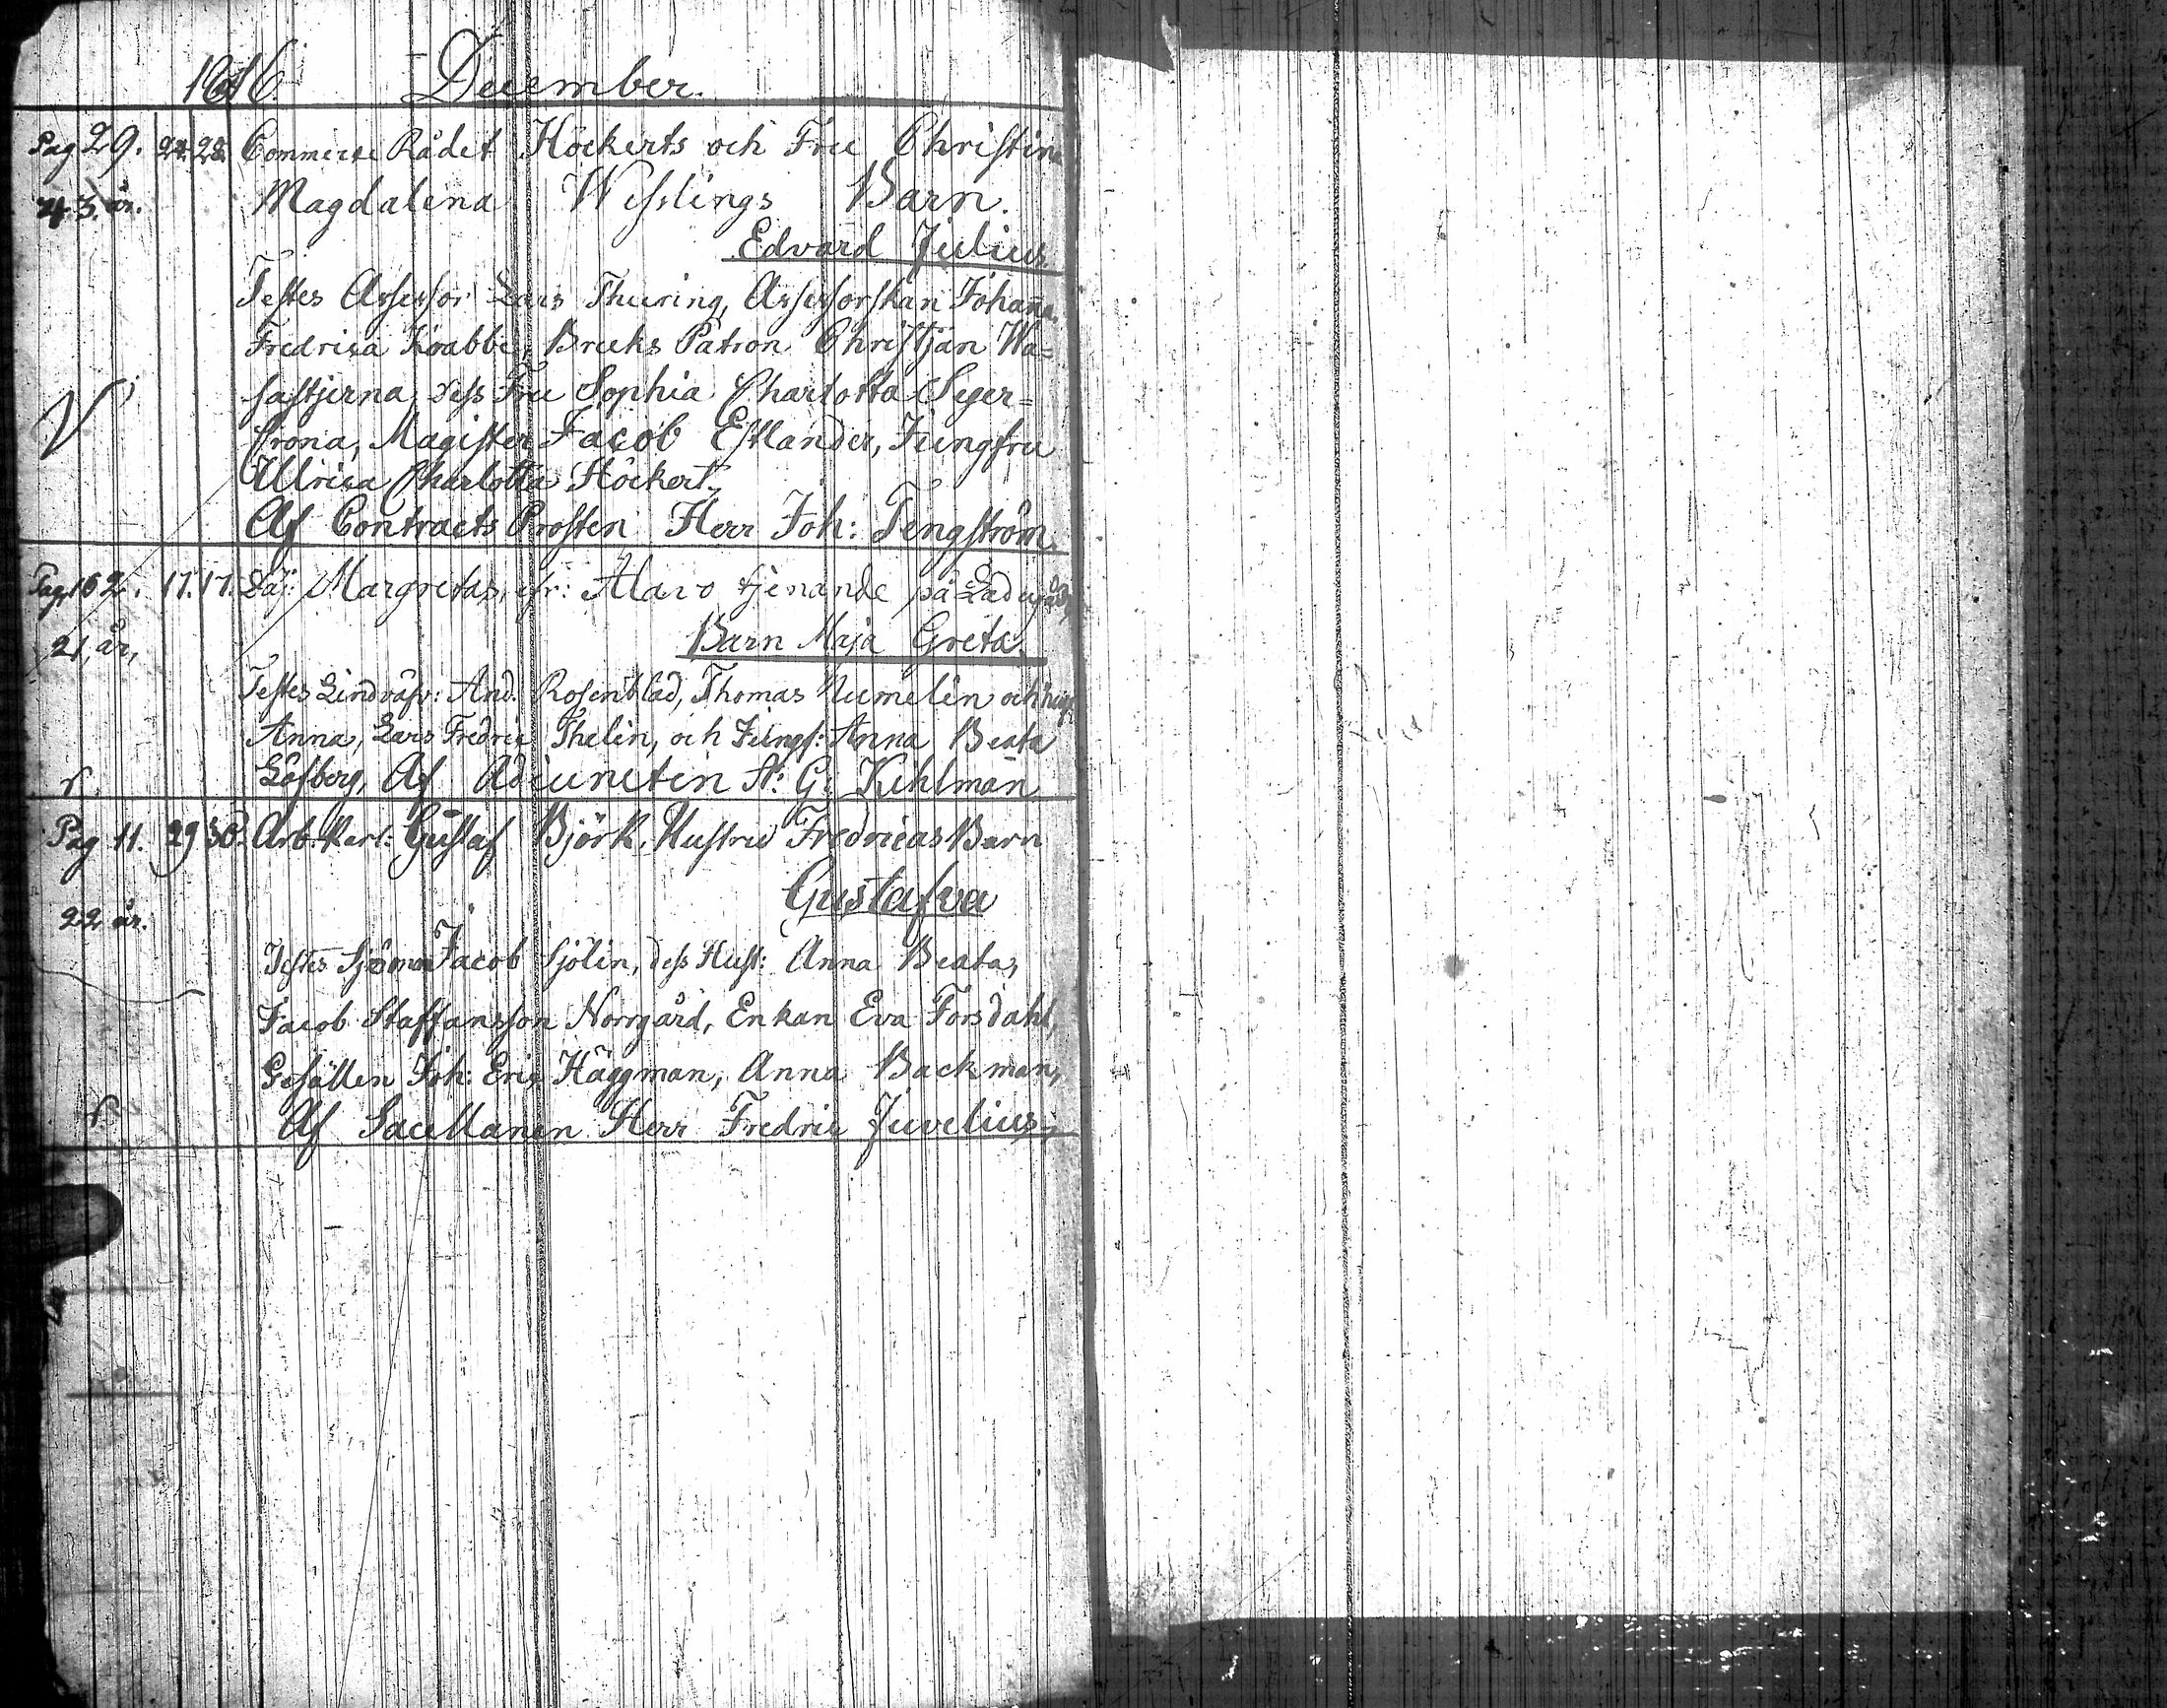 1816. December.
Pag 29. 24. 28. Commerce Rådet Höckerts och Fru Christina
43. år. Magdalena Wesslings Barn.
Edvard Julius.
Testes Assessor Lars Thuring, Assessorskan Johanna
Fredrica Krabbe, Bruks Patron Christjan Wa=
sastjerna, dess Fru Sophia Charlotta Seger=
crona, Magister Jacob Estlander, Jungfru
Ullrica Charlotta Höckert,
Af Contracts Prosten Herr Joh: Tengström.
Pag. 162. 17. 17. Margretas, fr: Alavo tjenande på
21, år, Barn Maja Greta.
Testes And. Rosenblad, Thomas Numelin och
Anna, Lars Fredric Thelin, och Jungf: Anna Beata
Löfberg, Af Adiuncten G: Kehlman
Pag 11. 29 30. Arb. Karl: Gustaf Björk, Hustru Fredricas Barn
Gustafva
22 år.
Testes Sjöman Jacob Sjölin, dess Hust: Anna Beata,
Jacob Staffansson Norrgård, Enkan Eva Forsdahl,
Gesällen Joh: Eric Häggman, Anna Backman,
Af Sacellanen Herr Fredric Juvelius,